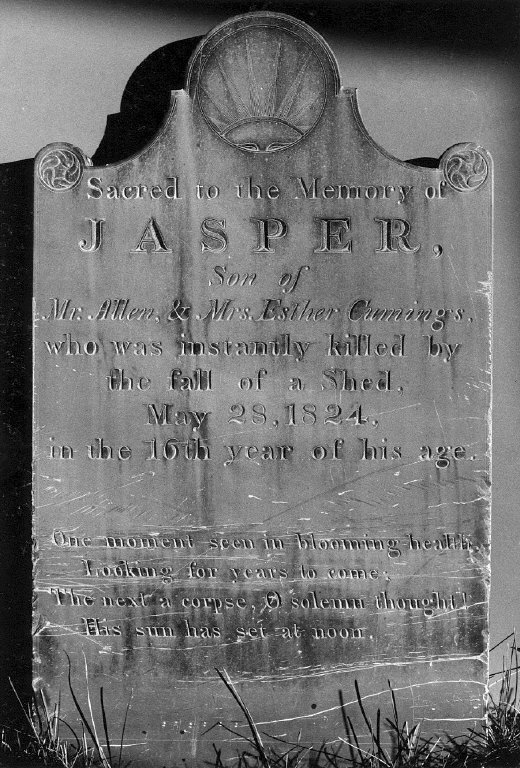 Sacred to the Memory of
JASPER,
Son of
Mr. Allen, & Mrs. Esther Cumings,
who was instantly killed by
the fall of a Shed,
May 28, 1824,
in the 16th year of his age.
One moment seen in blooming health,
Looking for years to come;
The next a corpse, O solemn thought!
His sun has set at noon.